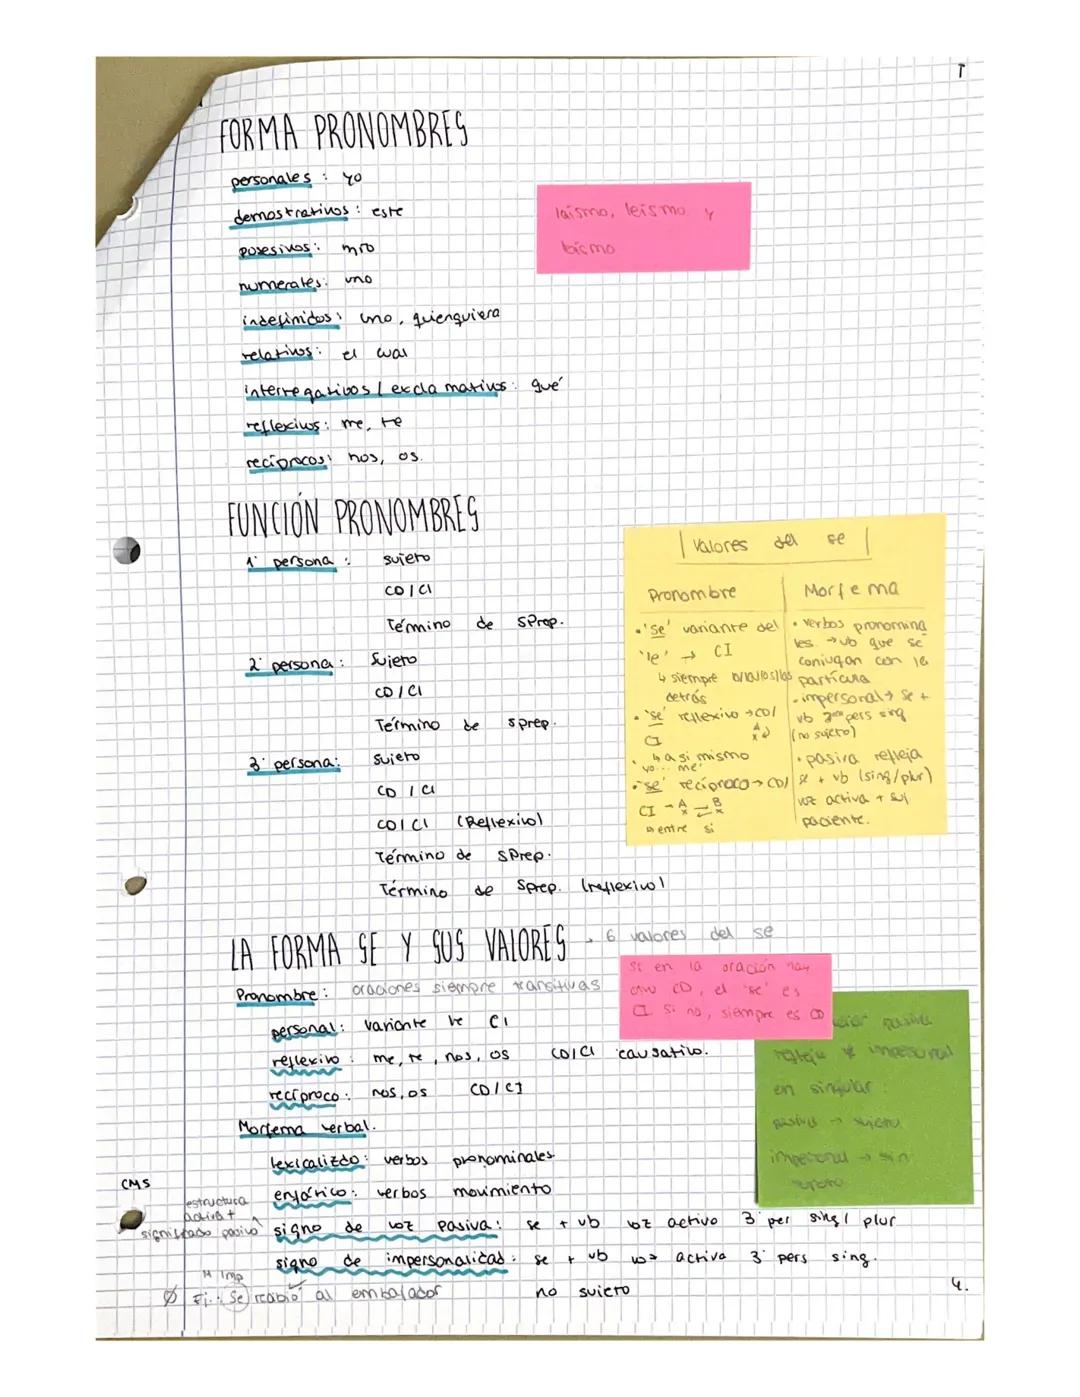 T
FORMA PRONOMBRES
personales : yo
demostrativos : este
posesivos : mío
numerales : uno
indefinidos : uno, quienquiera
relativos : el cual
interrogativos / exclamativos : qué
reflexivos : me, te
recíprocos : nos, os.
laísmo, leísmo y
loísmo
FUNCIÓN PRONOMBRES
1ª persona : sujeto
CD / CI
Término de SPrep.
2ª persona : Sujeto
CD / CI
Término de Sprep.
3ª persona : Sujeto
CD / CI
CD / CI (Reflexivo)
Término de SPrep.
Término de Sprep. (reflexivo)
Valores del se
Pronombre
• 'se' variante del
'le' → CI
↳ siempre
detrás
• 'se' reflexivo → CD/
CI
↳ a sí mismo
yo... me
• 'se' recíproco → CD/
CI → A B
entre sí
Morfema
• verbos pronomina
les. → vb que se
conjugan con la
partícula
• impersonal → se +
vb 3ª pers sing
(no sujeto)
• pasiva refleja
se + vb (sing/plur)
voz activa + suj
paciente.
LA FORMA SE Y SUS VALORES → 6 valores del se
Pronombre : oraciones siempre transitivas
personal : variante le CI
reflexivo : me, te, nos, os CD/CI causativo.
recíproco : nos, os CD/CI
Si en la oración hay
otro CD, el 'se' es
CI. Si no, siempre es CD
pasiva
refleja e impersonal
en singular :
pasiva → sujeto
impersonal → sin
sujeto
Morfema verbal.
lexicalizdo : verbos pronominales
enfático : verbos movimiento
signo de voz pasiva : se + vb voz activo 3ª per sing / plur
signo de impersonalidad : se + vb voz activa 3ª pers sing.
no sujeto
CMS
estructura
activa +
significado pasivo
Imp
Ø Ej.: Se recibió al embajador
4.